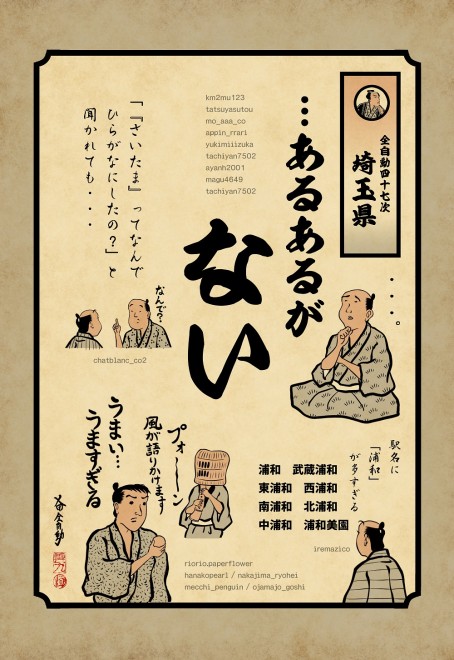 全自動四十七次
埼玉県
…あるあるが
ない
km2mu123
tatsuyasutou
mo_aaa_co
appin_rrari
yukimiiizuka
tachiyan7502
ayanh2001
magu4649
tachiyan7502
「『さいたま』ってなんで
ひらがなにしたの？」と
聞かれても・・・
なんで？
chatblanc_co2
・・・。
駅名に
「浦和」
が多すぎる
浦和　武蔵浦和
東浦和　西浦和
南浦和　北浦和
中浦和　浦和美園
iremszico
プォーーン
風が語りかけます
うまい…
うますぎる
riorio.paperflower
hanakopearl / nakajima_ryohei
mecchi_penguin / ojamajo_goshi